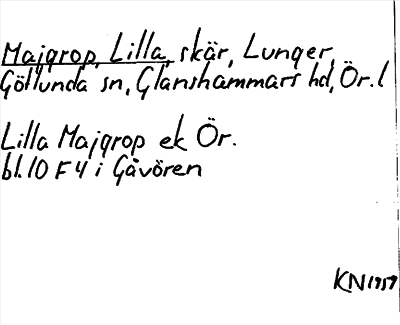 Majgrop, Lilla, skär, Lunger,
Göllunda sn, Glanshammars hd, Ör. l
Lilla Majgrop ek Ör.
bl. 10 F 4 i Gåvören
KN 1959